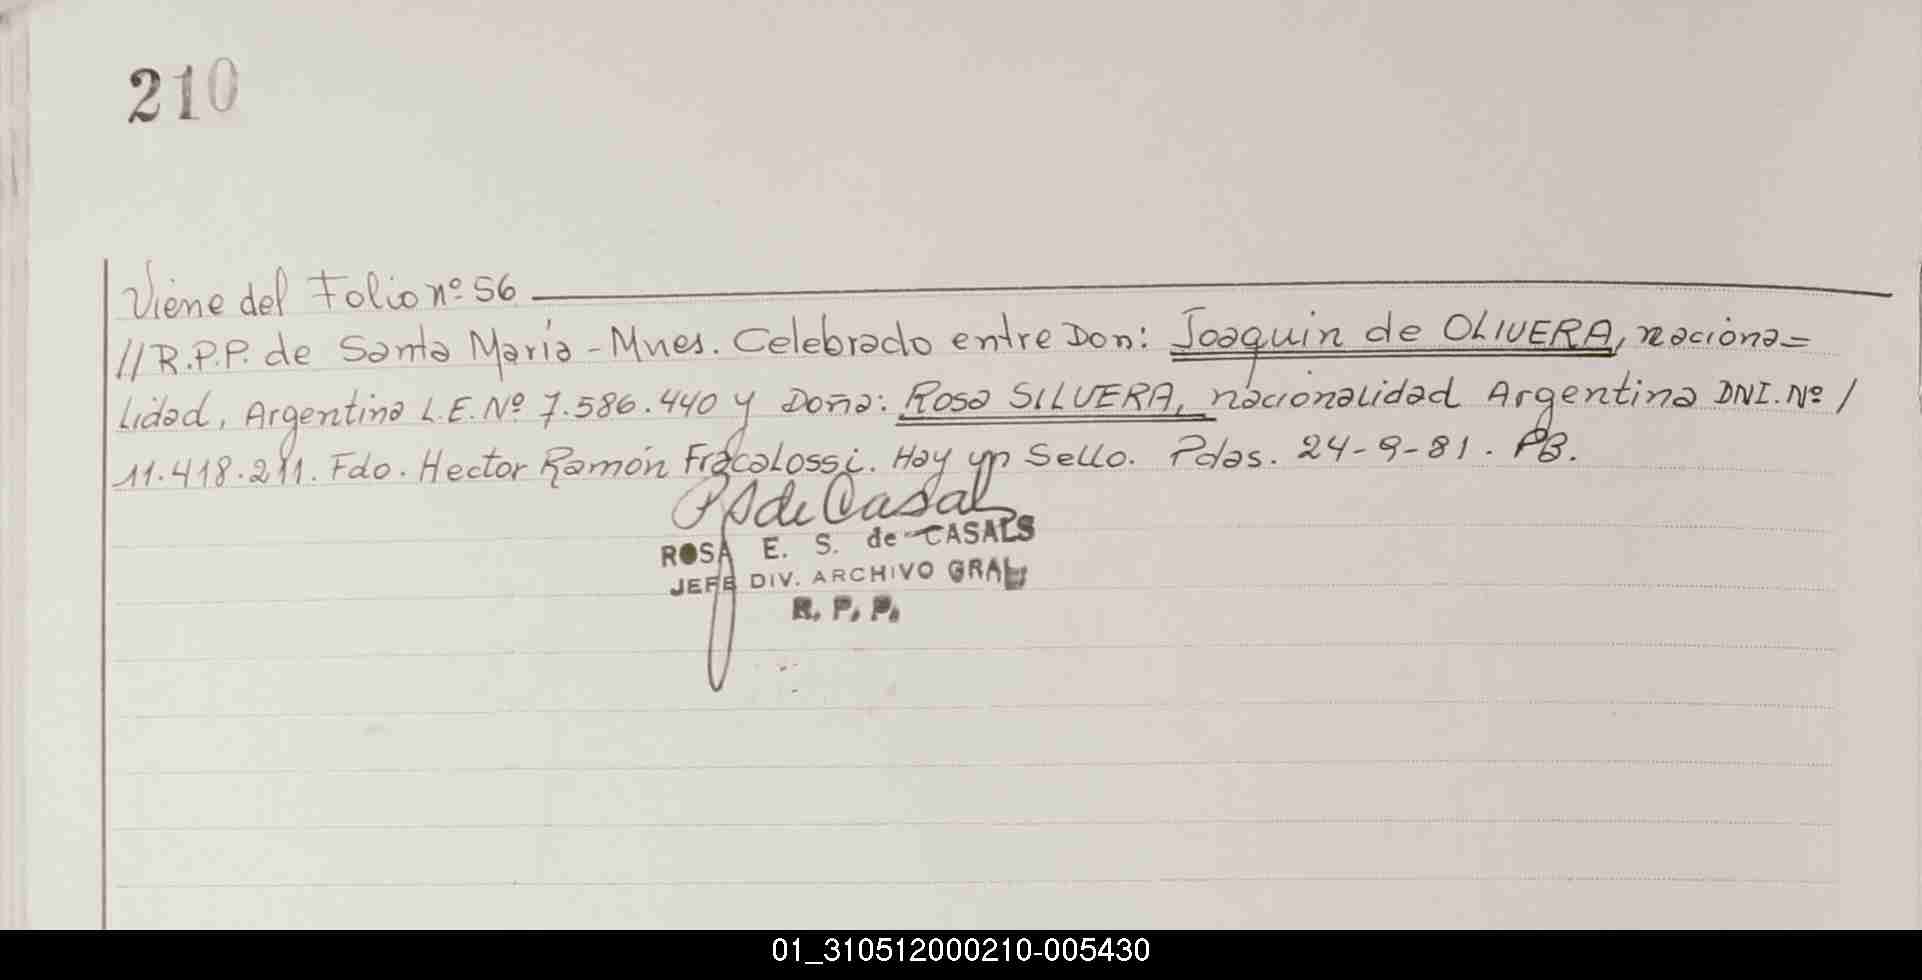 210
Viene del Folio nº 56
//R.P.P. de Santa María - Mnes. Celebrado entre Don: Joaquin de OLIVERA, naciona=
lidad, Argentina L.E. Nº 7.586.440 y Doña: Rosa SILVERA, nacionalidad Argentina DNI. Nº /
11.418.211. Fdo. Hector Ramón Fracalossi. Hay un Sello. Pdas. 24-9-81. PB.
RS de Casals
ROSA E. S. de CASALS
JEFE DIV. ARCHIVO GRAL.
R. P. P.
01_310512000210-005430